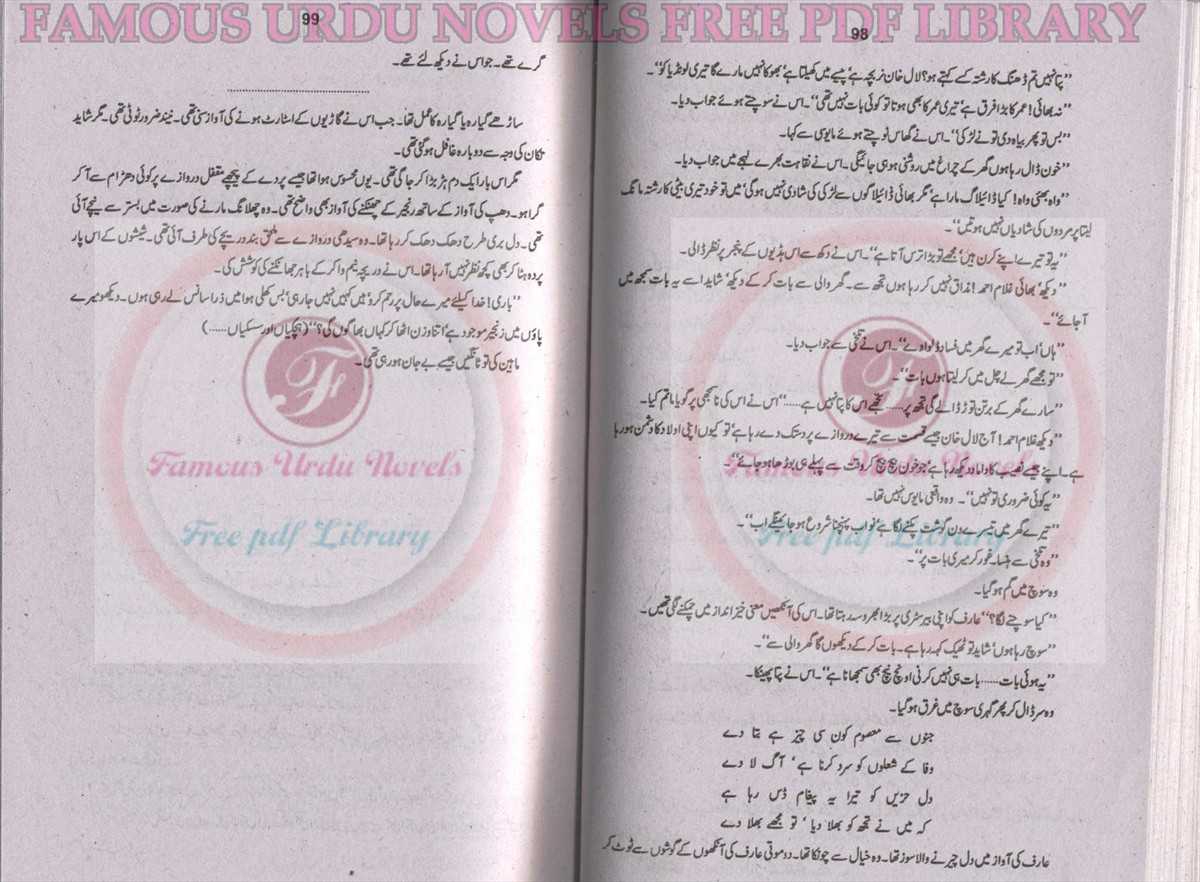 FAMOUS URDU NOVELS FREE PDF LIBRARY
98
"پتا نہیں تم ڈھنگ کا رشتہ کسے کہتے ہو؟ لال خان نر بچہ ہے' پیسے میں کھیلتا ہے' بھوکا نہیں مارے گا تیری لونڈیا کو"۔
"نہ بھائی! عمر کا بڑا فرق ہے' تیری عمر کا بھی ہوتا تو کوئی بات نہیں تھی"۔ اس نے سوچتے ہوئے جواب دیا۔
"بس تو پھر بیاہ دی تو نے لڑکی"۔ اس نے گھاس نوچتے ہوئے مایوسی سے کہا۔
"خون ڈال رہا ہوں گھر کے چراغ میں روشنی ہو ہی جائیگی۔ اس نے نقاہت بھرے لہجے میں جواب دیا۔
"واہ بھئی واہ! کیا ڈائیلاگ مارا ہے' مگر بھائی ڈائیلاگوں سے لڑکی کی شادی نہیں ہو گی' میں تو خود تیری بیٹی کا رشتہ مانگ
لیتا پر مردوں کی شادیاں نہیں ہوتیں"۔
"یہ تو تیرے اپنے کرن ہیں' مجھے تو بڑا ترس آتا ہے"۔ اس نے دکھ سے اس ہڈیوں کے پنجر پر نظر ڈالی۔
"دیکھ' بھائی غلام احمد! مذاق نہیں کر رہا ہوں تجھ سے۔ گھر والی سے بات کر کے دیکھ' شاید اسے یہ بات سمجھ میں
آ جائے"۔
"ہاں' اب تو میرے گھر میں فساد ڈلوا دے"۔ اس نے تلخی سے جواب دیا۔
"تو مجھے گھر لے چل میں کر لیتا ہوں بات"۔
"سارے گھر کے برتن توڑ ڈالے گی تجھ پر...... تجھے اس کا پتا نہیں ہے......" اس نے اس کی نا سمجھی پر گویا ماتم کیا۔
"دیکھ غلام احمد! آج لال خان جیسے قسمت سے تیرے دروازے پر دستک دے رہا ہے' تو کیوں اپنی اولاد کا دشمن ہو رہا
ہے۔ اپنے جیسے نصیب کا داماد دیکھ رہا ہے' جو خون بیچ بیچ کر وقت سے پہلے ہی بوڑھا ہو جائے"۔
"یہ کوئی ضروری تو نہیں"۔ وہ واقعی مایوس نہیں تھا۔
"تیرے گھر میں تیسرے دن گوشت پکنے لگا ہے' نواب پہنچنا شروع ہو جائینگے اب"۔
"وہ تلخی سے ہنسا۔ غور کر میری بات پر"۔
وہ سوچ میں گم ہو گیا۔
"کیا سوچنے لگا؟" عارف کو اپنی بیرسٹری پر بڑا بھروسہ رہتا تھا۔ اس کی آنکھیں معنی خیز انداز میں چمکنے لگی تھیں۔
"سوچ رہا ہوں' شاید تو ٹھیک کہہ رہا ہے۔ بات کر کے دیکھوں گا گھر والی سے"۔
"یہ ہوئی بات...... بات ہی نہیں کرنی اونچ نیچ بھی سمجھانا ہے"۔ اس نے پتا پھینکا۔
وہ سر ڈال کر پھر گہری سوچ میں غرق ہو گیا۔
جنوں سے معصوم کون سی چیز ہے بتا دے
وفا کے شعلوں کو سرد کرنا ہے' آگ لا دے
دل حزیں کو تیرا یہ پیغام ڈس رہا ہے
کہ میں نے تجھ کو بھلا دیا' تو مجھے بھلا دے
عارف کی آواز میں دل چیرنے والا سوز تھا۔ وہ خیال سے چونکا تھا۔ دو موتی عارف کی آنکھوں کے گوشوں سے ٹوٹ کر
99
گرے تھے۔ جو اس نے دیکھ لئے تھے۔
........................................
ساڑھے گیارہ یا گیارہ کا عمل تھا۔ جب اس نے گاڑیوں کے اسٹارٹ ہونے کی آواز سنی تھی۔ نیند ضرور ٹوٹی تھی۔ مگر شاید
تکان کی وجہ سے دوبارہ غافل ہو گئی تھی۔
مگر اس بار ایک دم ہڑبڑا کر جاگی تھی۔ یوں محسوس ہوا تھا جیسے پردے کے پیچھے مقفل دروازے پر کوئی دھڑام سے آ کر
گرا ہو۔ دھپ کی آواز کے ساتھ زنجیر کے چھنکنے کی آواز بھی واضح تھی۔ وہ چھلانگ مارنے کی صورت میں بستر سے نیچے آئی
تھی۔ دل بری طرح دھک دھک کر رہا تھا۔ وہ سیدھی دروازے سے ملحق بند دریچے کی طرف آئی تھی۔ شیشوں کے اس پار
پردہ ہٹا کر بھی کچھ نظر نہیں آ رہا تھا۔ اس نے دریچہ نیم وا کر کے باہر جھانکنے کی کوشش کی۔
"باری! خدا کیلئے میرے حال پر رحم کرو' میں کہیں نہیں جا رہی' بس کھلی ہوا میں ذرا سانس لے رہی ہوں۔ دیکھو میرے
پاؤں میں زنجیر موجود ہے' اتنا وزن اٹھا کر کہاں بھاگوں گی؟" (ہچکیاں اور سسکیاں......)
ماہین کی تو ٹانگیں جیسے بے جان ہو رہی تھی۔
Famous Urdu Novels
Free pdf Library
Famous Urdu Novels
Free pdf Library